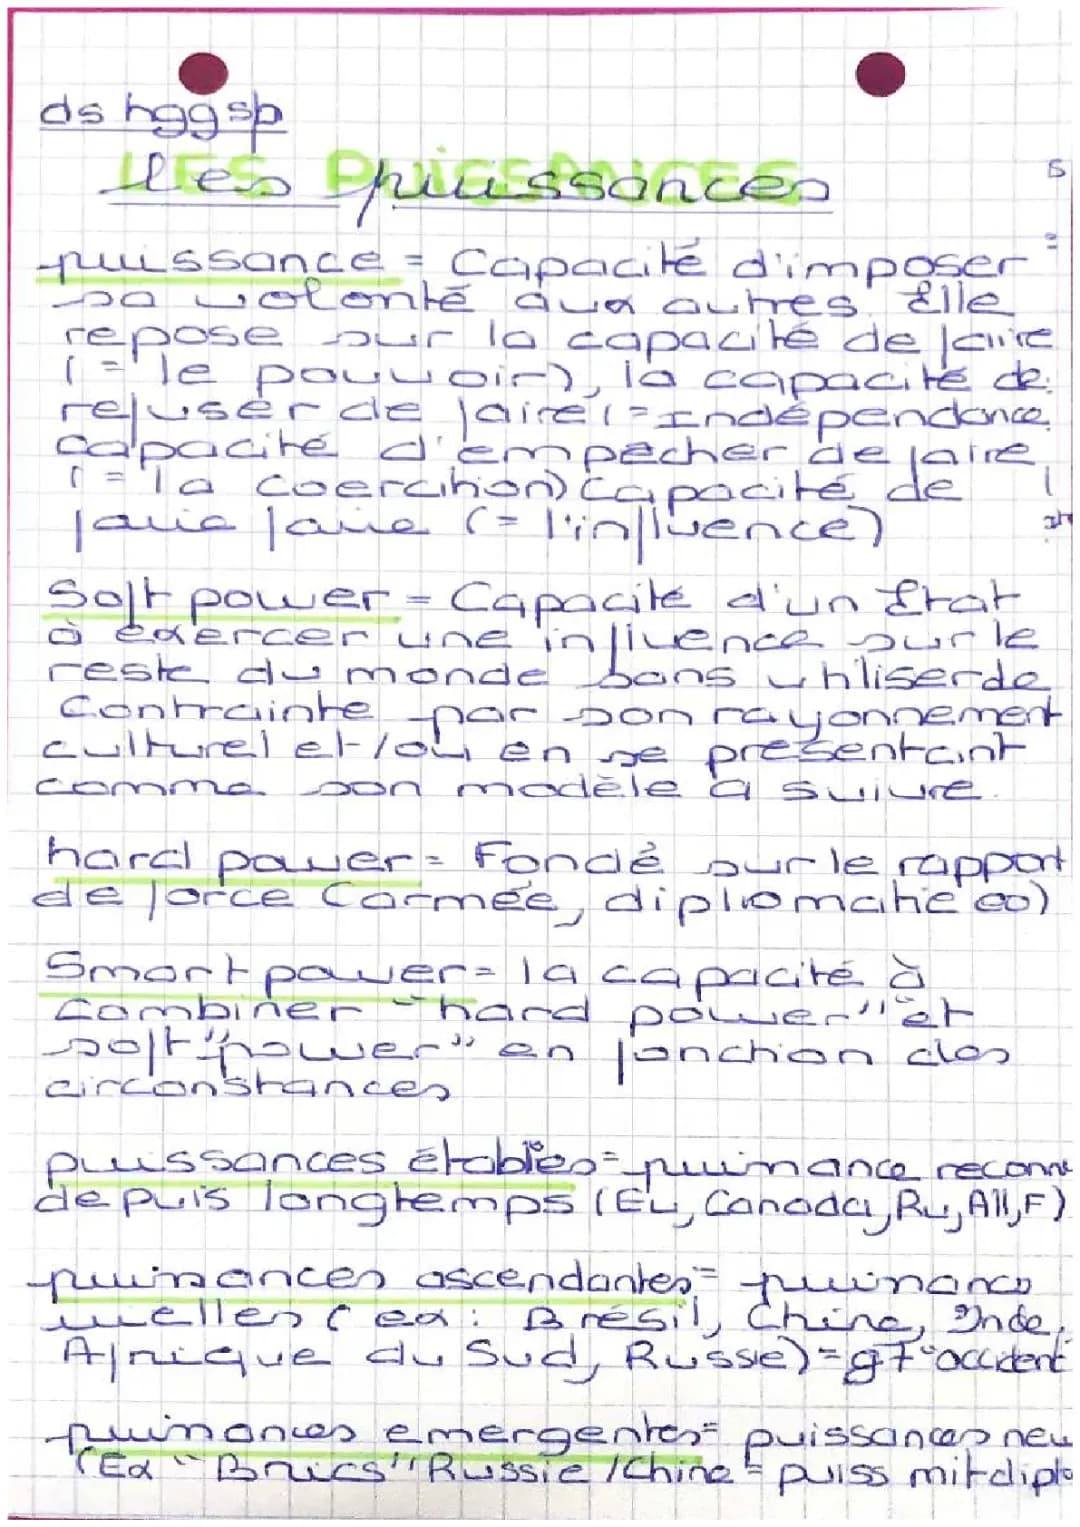 ds hggsp
Les puissances
puissance = Capacité d'imposer
sa volonté aux autres. Elle
repose sur la capacité de faire
(= le pouvoir), la capacité de
refuser de faire (= Indépendance
capacité d'empêcher de faire
(= la coercition) capacité de
faire faire (= l'influence)
Soft power = Capacité d'un État
à exercer une influence sur le
reste du monde sans utiliser de
Contrainte par son rayonnement
culturel et/ou en se présentant
comme son modèle à suivre.
hard power = Fondé sur le rapport
de force (armée, diplomatie)
Smart power = la capacité à
Combiner "hard power" et
soft "power" en fonction des
circonstances
puissances établies = puissance reconnu
depuis longtemps (Eu, Canada, Ru, All, F)
puissances ascendantes = puissances
(ex: Brésil, Chine, Inde,
Afrique du Sud, Russie) = g7 "occident
puissances emergentes = puissances neu
(Ex "Brics" Russie / Chine = puiss mit diplo